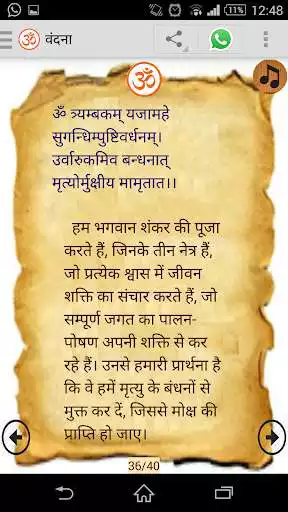 11% 12:48
वंदना
ॐ त्र्यम्बकम् यजामहे
सुगन्धिम्पुष्टिवर्धनम्।
उर्वारुकमिव बन्धनात्
मृत्योर्मुक्षीय मामृतात।।
हम भगवान शंकर की पूजा
करते हैं, जिनके तीन नेत्र हैं,
जो प्रत्येक श्वास में जीवन
शक्ति का संचार करते हैं, जो
सम्पूर्ण जगत का पालन-
पोषण अपनी शक्ति से कर
रहे हैं। उनसे हमारी प्रार्थना है
कि वे हमें मृत्यु के बंधनों से
मुक्त कर दें, जिससे मोक्ष की
प्राप्ति हो जाए।
36/40